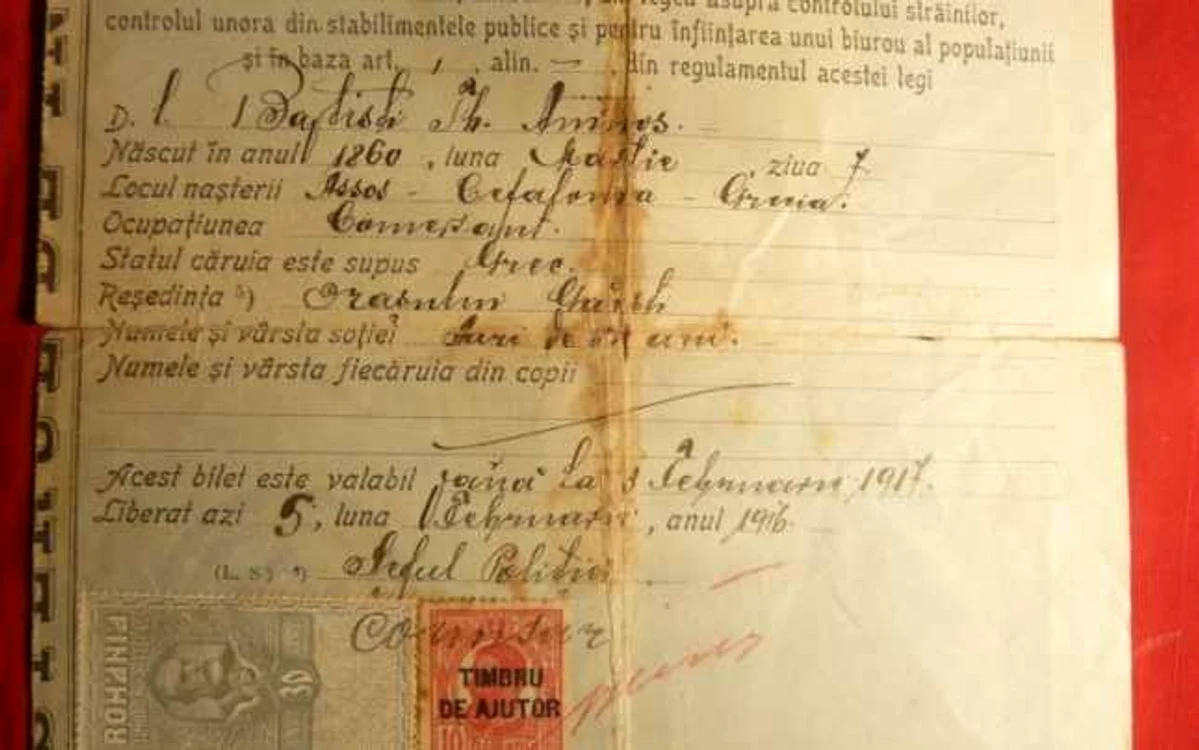 legea asupra controlului străinilor,
controlul unora din stabilimentele publice și pentru înființarea unui biurou al populațiunii
și în baza art. 1, alin. — , din regulamentul acestei legi
D. l. Baptisti Th. Aninos.
Născut în anul 1860, luna Martie, ziua 7
Locul nașterii Assos - Cefalonia - Grecia.
Ocupațiunea Comersant.
Statul căruia este supus Grec.
Reședința ⁵) Orasului
Numele și vârsta soției de ani.
Numele și vârsta fiecăruia din copii
Acest bilet este valabil până la 5 Februarie 1917.
Liberat azi 5, luna Februarie, anul 1916
(L. S.) ⁶) Șeful Poliției
Comisar
ROMÂNIA
TIMBRU
DE AJUTOR